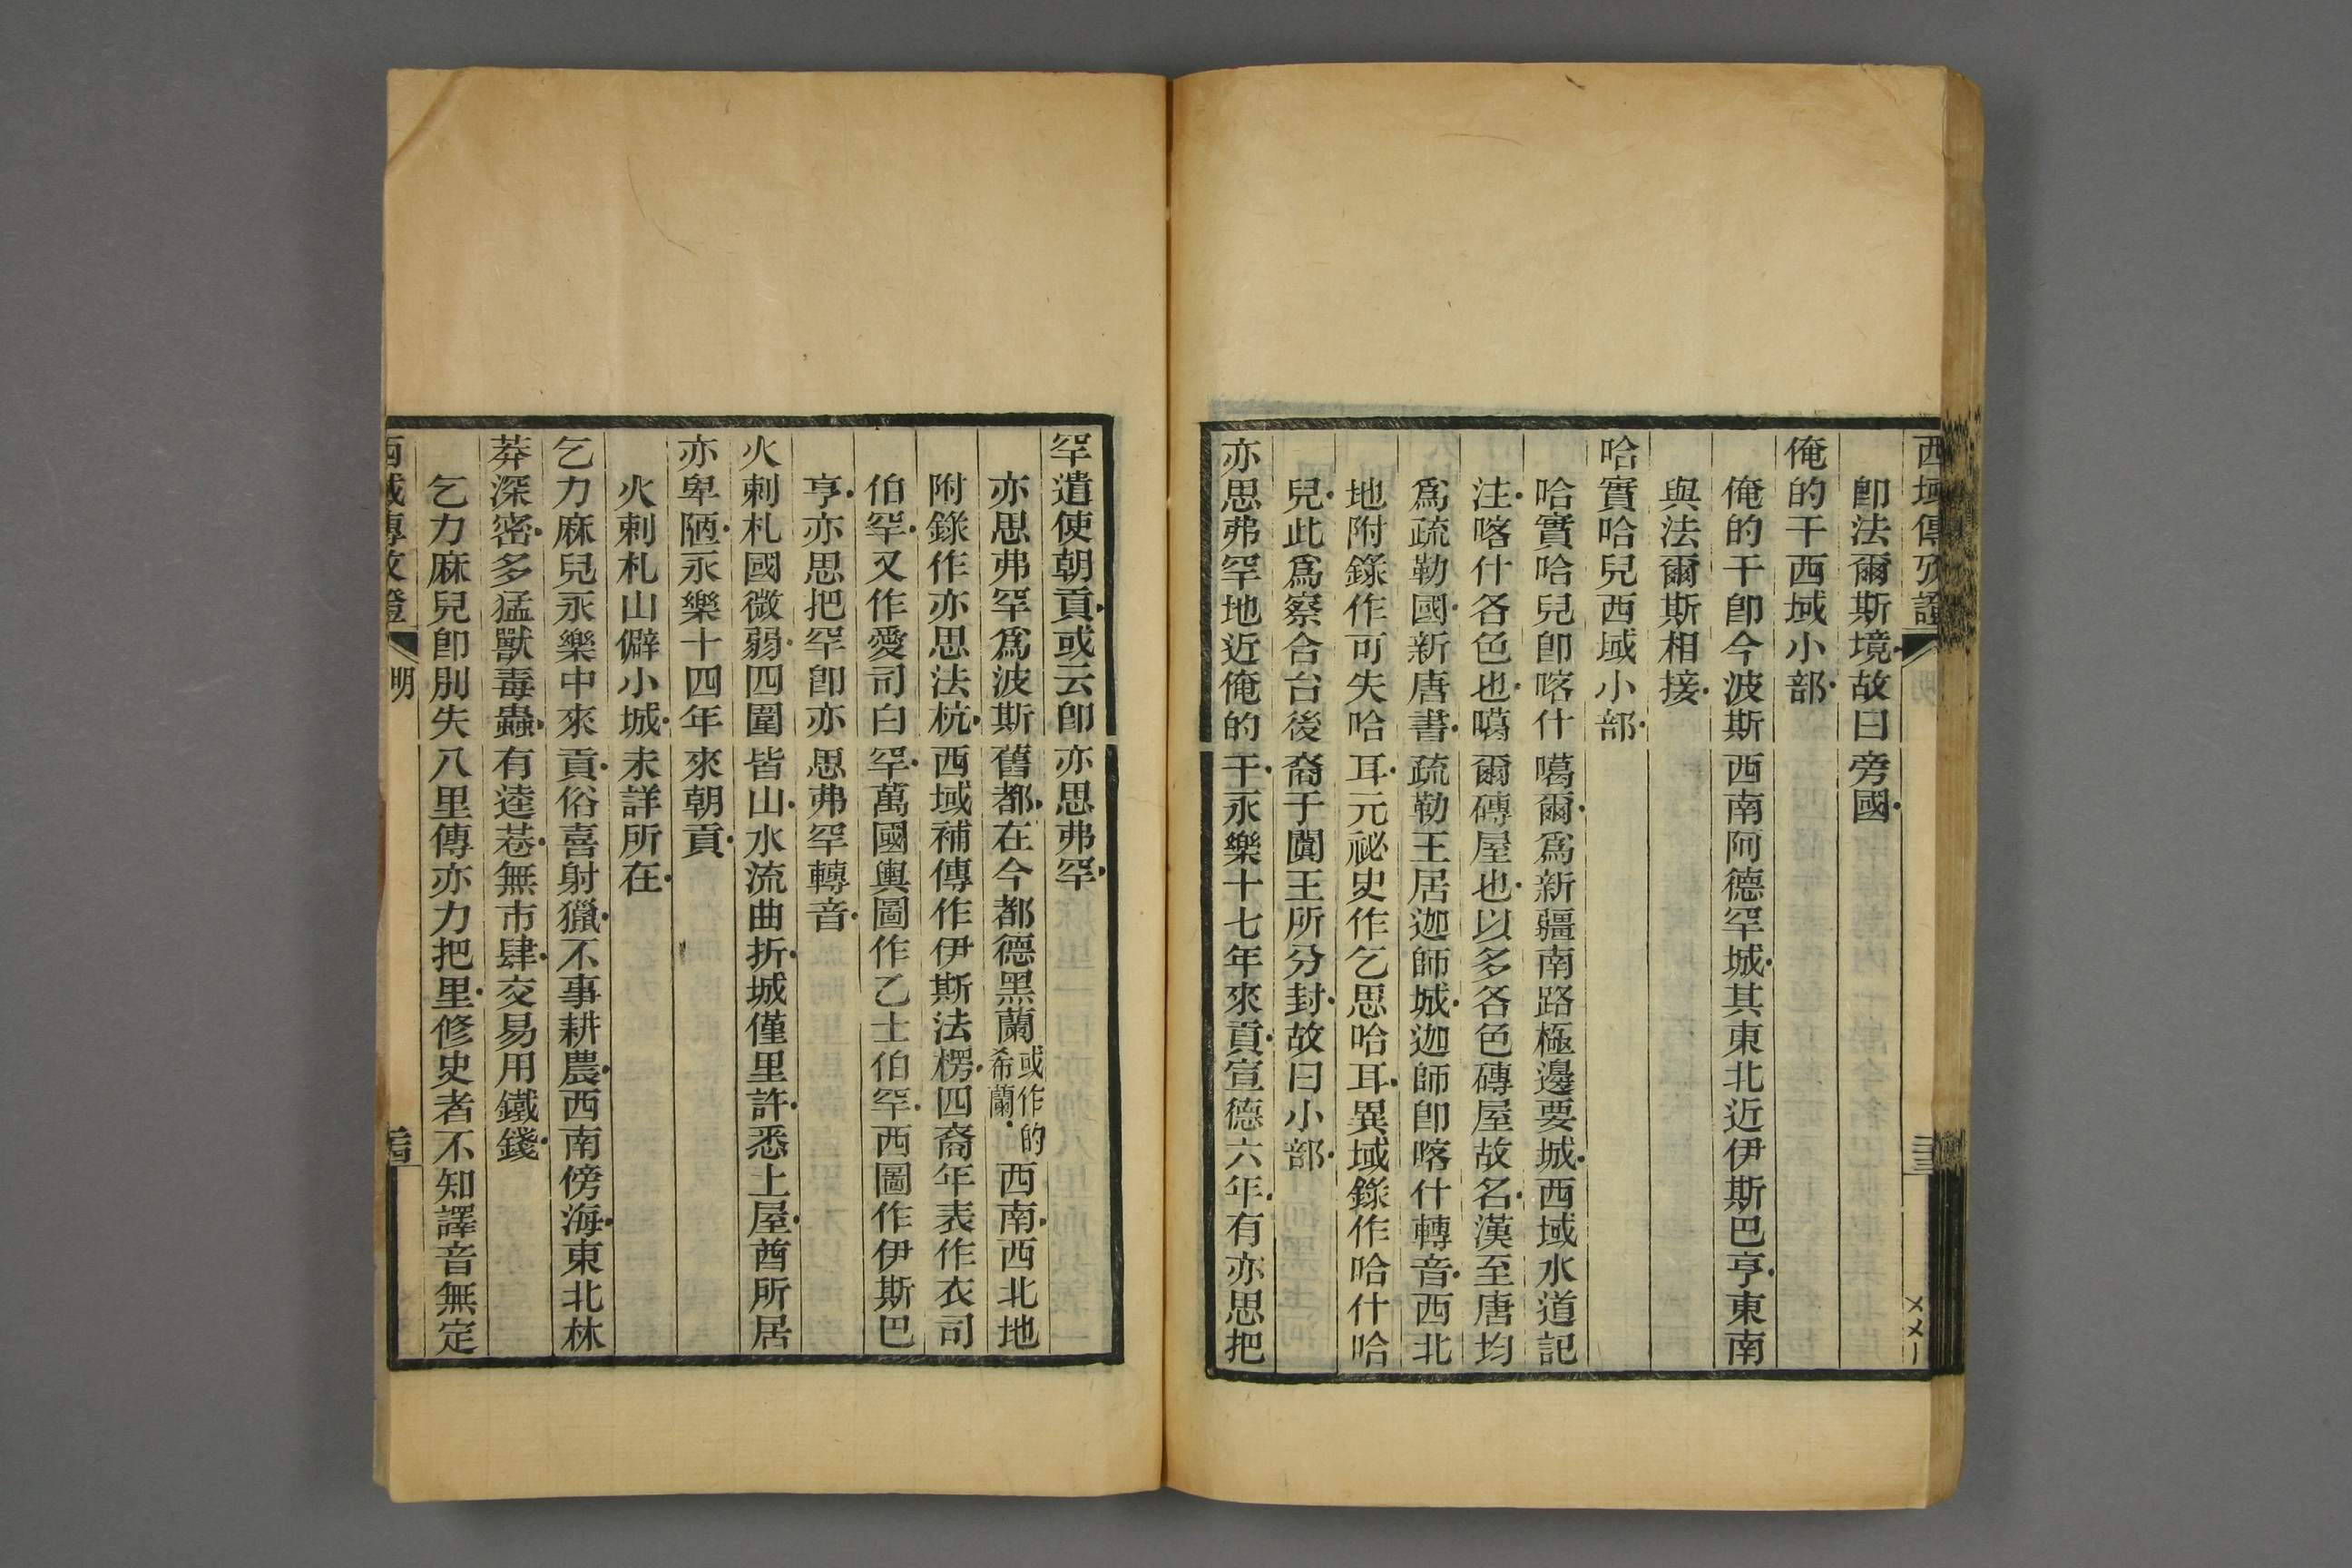 西域傳攷證
明
三三
〤〤〡
卽法爾斯境故曰旁國
俺的干西域小部
俺的干卽今波斯西南阿德罕城其東北近伊斯巴亨東南
與法爾斯相接
哈實哈兒西域小部
哈實哈兒卽喀什噶爾爲新疆南路極邊要城西域水道記
注喀什各色也噶爾磚屋也以多各色磚屋故名漢至唐均
爲疏勒國新唐書疏勒王居迦師城迦師卽喀什轉音西北
地附錄作可失哈耳元祕史作乞思哈耳異域錄作哈什哈
兒此爲察合台後裔于闐王所分封故曰小部
亦思弗罕地近俺的干永樂十七年來貢宣德六年有亦思把
罕遣使朝貢或云卽亦思弗罕
亦思弗罕爲波斯舊都在今都德黑蘭或作的希蘭西南西北地
附錄作亦思法杭西域補傳作伊斯法楞四裔年表作衣司
伯罕又作愛司白罕萬國輿圖作乙士伯罕西圖作伊斯巴
亨亦思把罕卽亦思弗罕轉音
火剌札國微弱四圍皆山水流曲折城僅里許悉土屋酋所居
亦卑陋永樂十四年來朝貢
火剌札山僻小城未詳所在
乞力麻兒永樂中來貢俗喜射獵不事耕農西南傍海東北林
莽深密多猛獸毒蟲有逵巷無市肆交易用鐵錢
乞力麻兒卽別失八里傳亦力把里修史者不知譯音無定
西域傳攷證
明